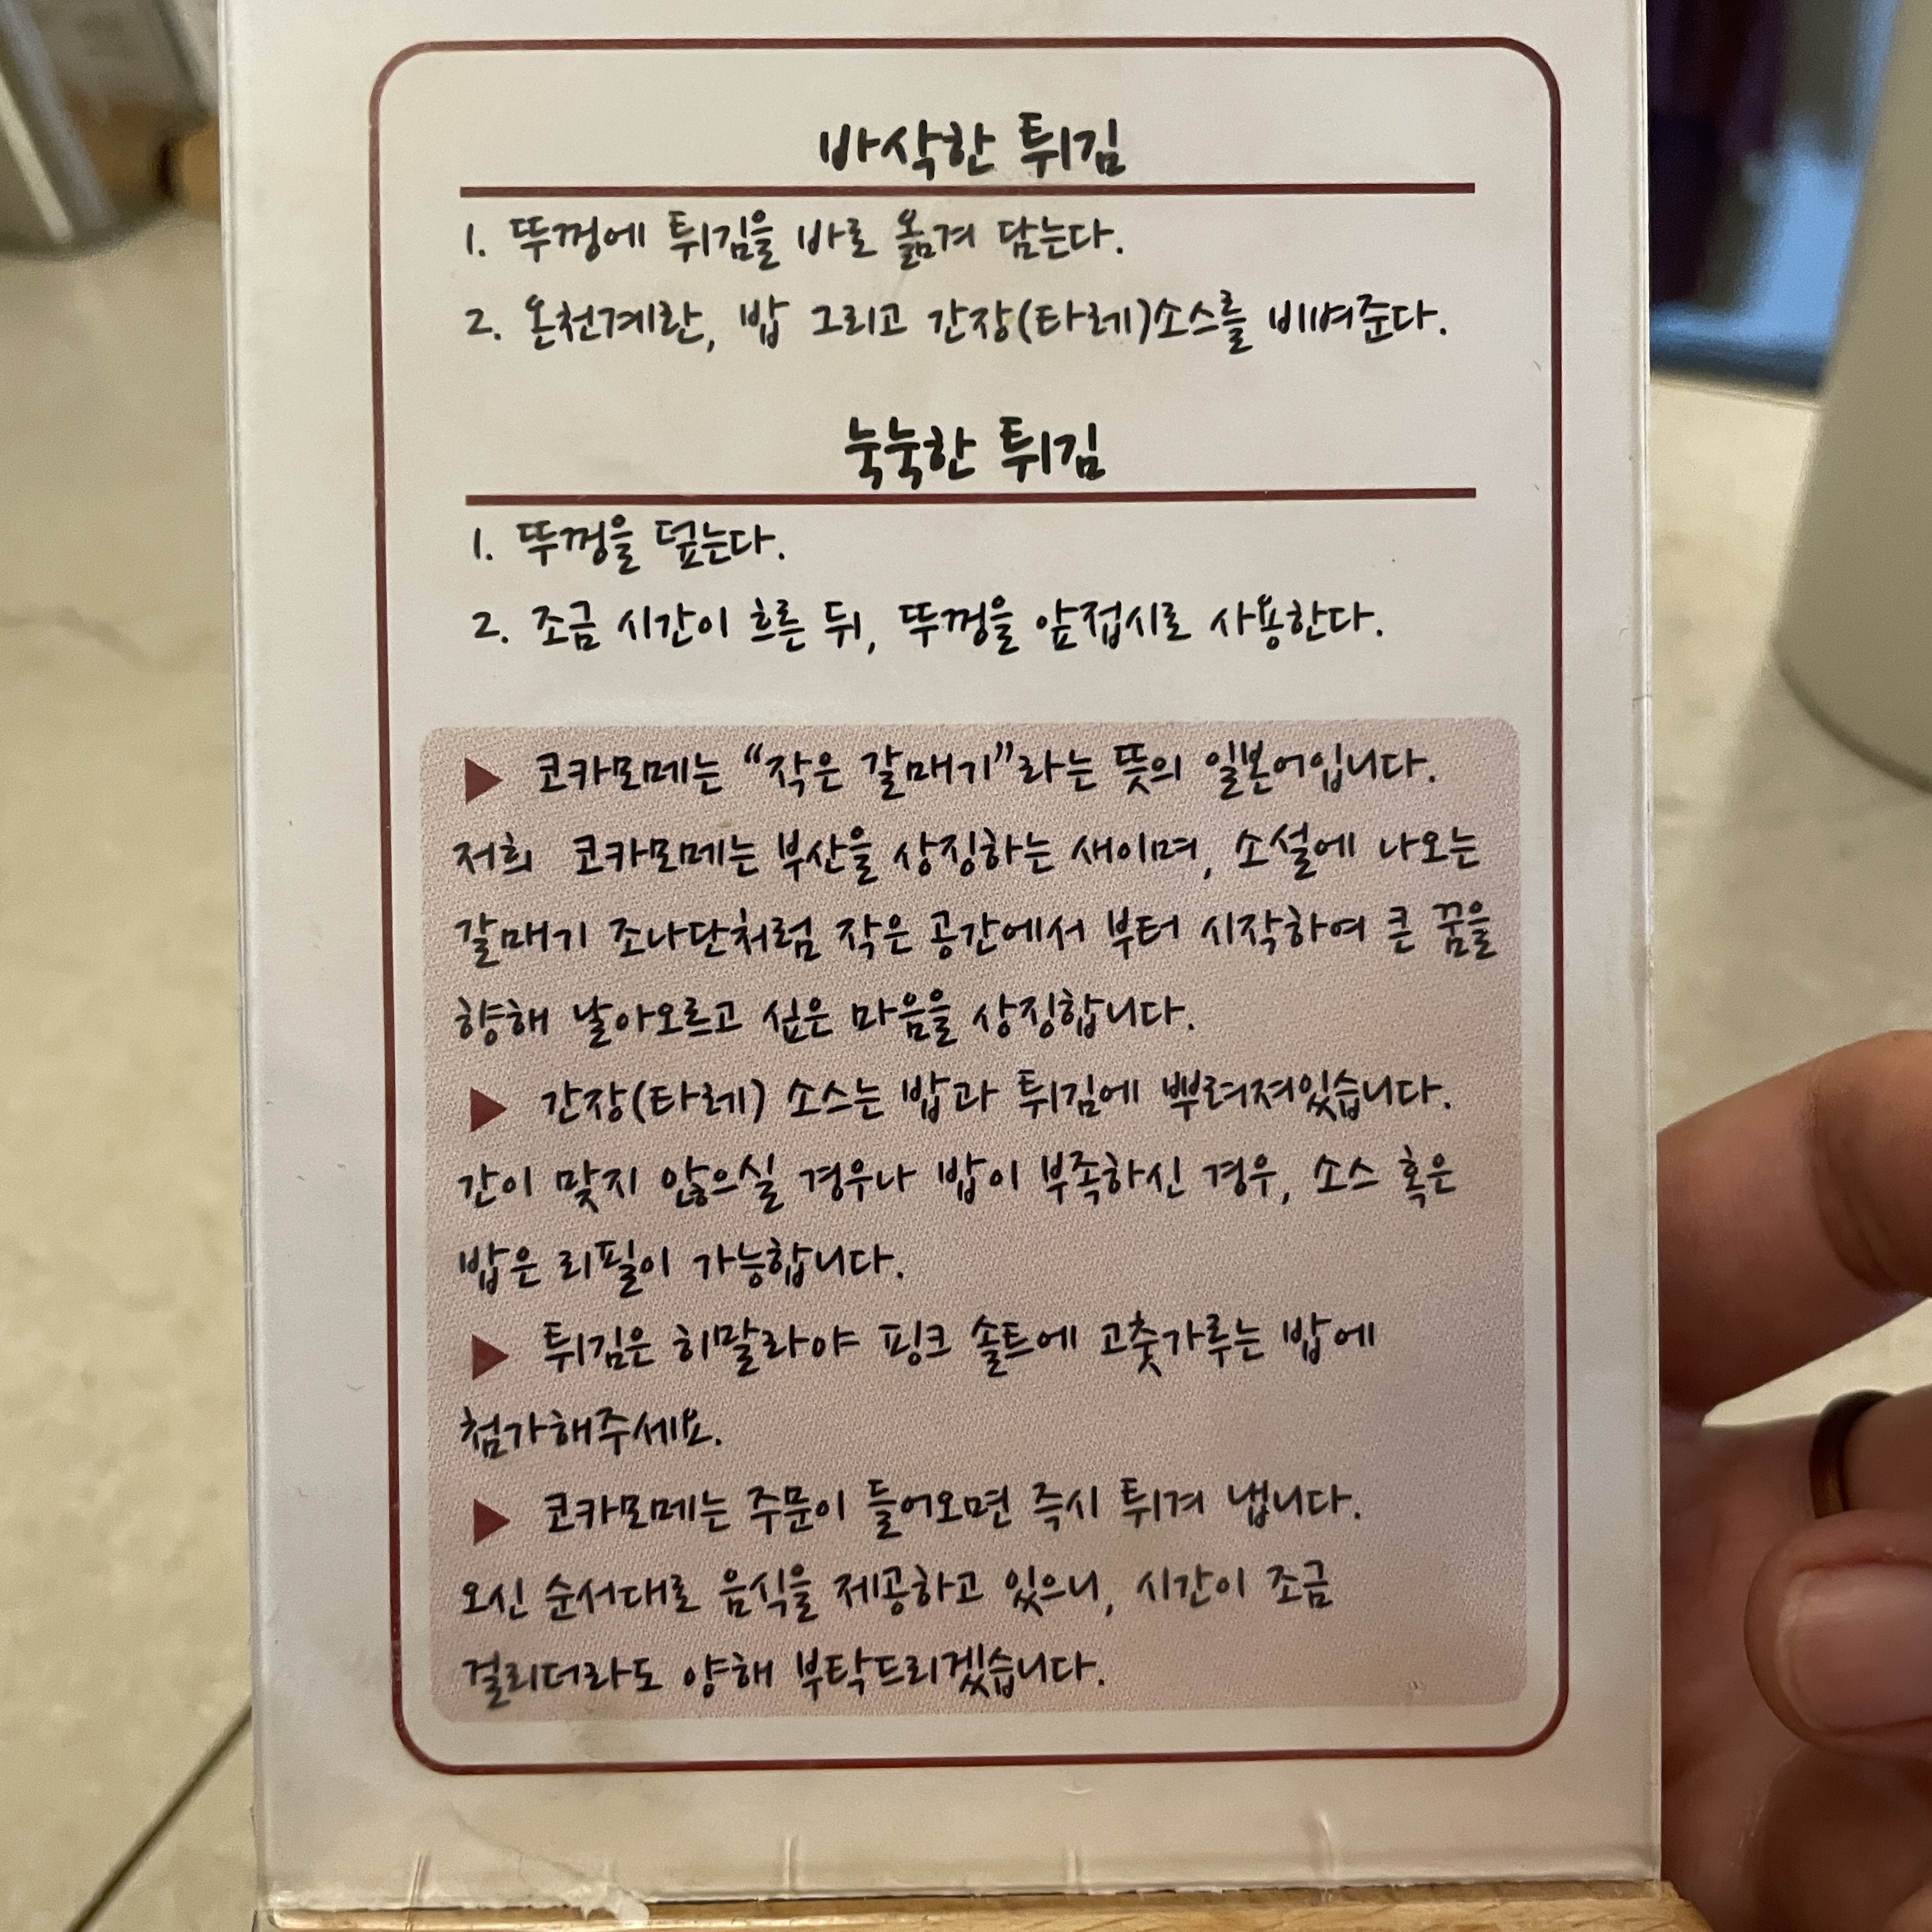 바삭한 튀김
1. 뚜껑에 튀김을 바로 옮겨 담는다.
2. 온천계란, 밥 그리고 간장(타레)소스를 비벼준다.
눅눅한 튀김
1. 뚜껑을 덮는다.
2. 조금 시간이 흐른 뒤, 뚜껑을 앞접시로 사용한다.
▶ 코카모메는 “작은 갈매기”라는 뜻의 일본어입니다.
저희 코카모메는 부산을 상징하는 새이며, 소설에 나오는
갈매기 조나단처럼 작은 공간에서 부터 시작하여 큰 꿈을
향해 날아오르고 싶은 마음을 상징합니다.
▶ 간장(타레) 소스는 밥과 튀김에 뿌려져있습니다.
간이 맞지 않으실 경우나 밥이 부족하신 경우, 소스 혹은
밥은 리필이 가능합니다.
▶ 튀김은 히말라야 핑크 솔트에 고춧가루는 밥에
첨가해주세요.
▶ 코카모메는 주문이 들어오면 즉시 튀겨 냅니다.
오신 순서대로 음식을 제공하고 있으니, 시간이 조금
걸리더라도 양해 부탁드리겠습니다.